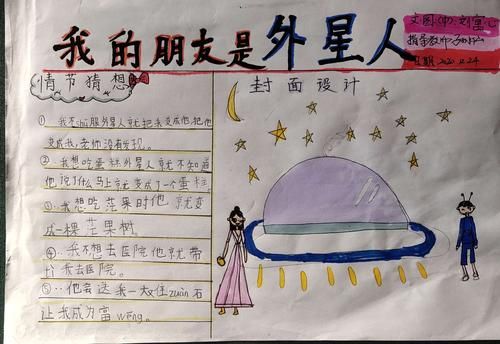 我的朋友是外星人
文图(中)刘宣
指导教师
日期2020.12.24
情节猜想
封面设计
① 我不shū服外星人就把我变成他把他
变成我,老师没有发现。
② 我想吃蛋糕外星人就不知道
他说了什么马上就变成了一个蛋糕
③ 我想吃芒果时他就变
成一棵芒果树
④ 我不想去医院他就带
我去医院。
⑤ 他会送我一大zuàn石
让我成为富wēng。